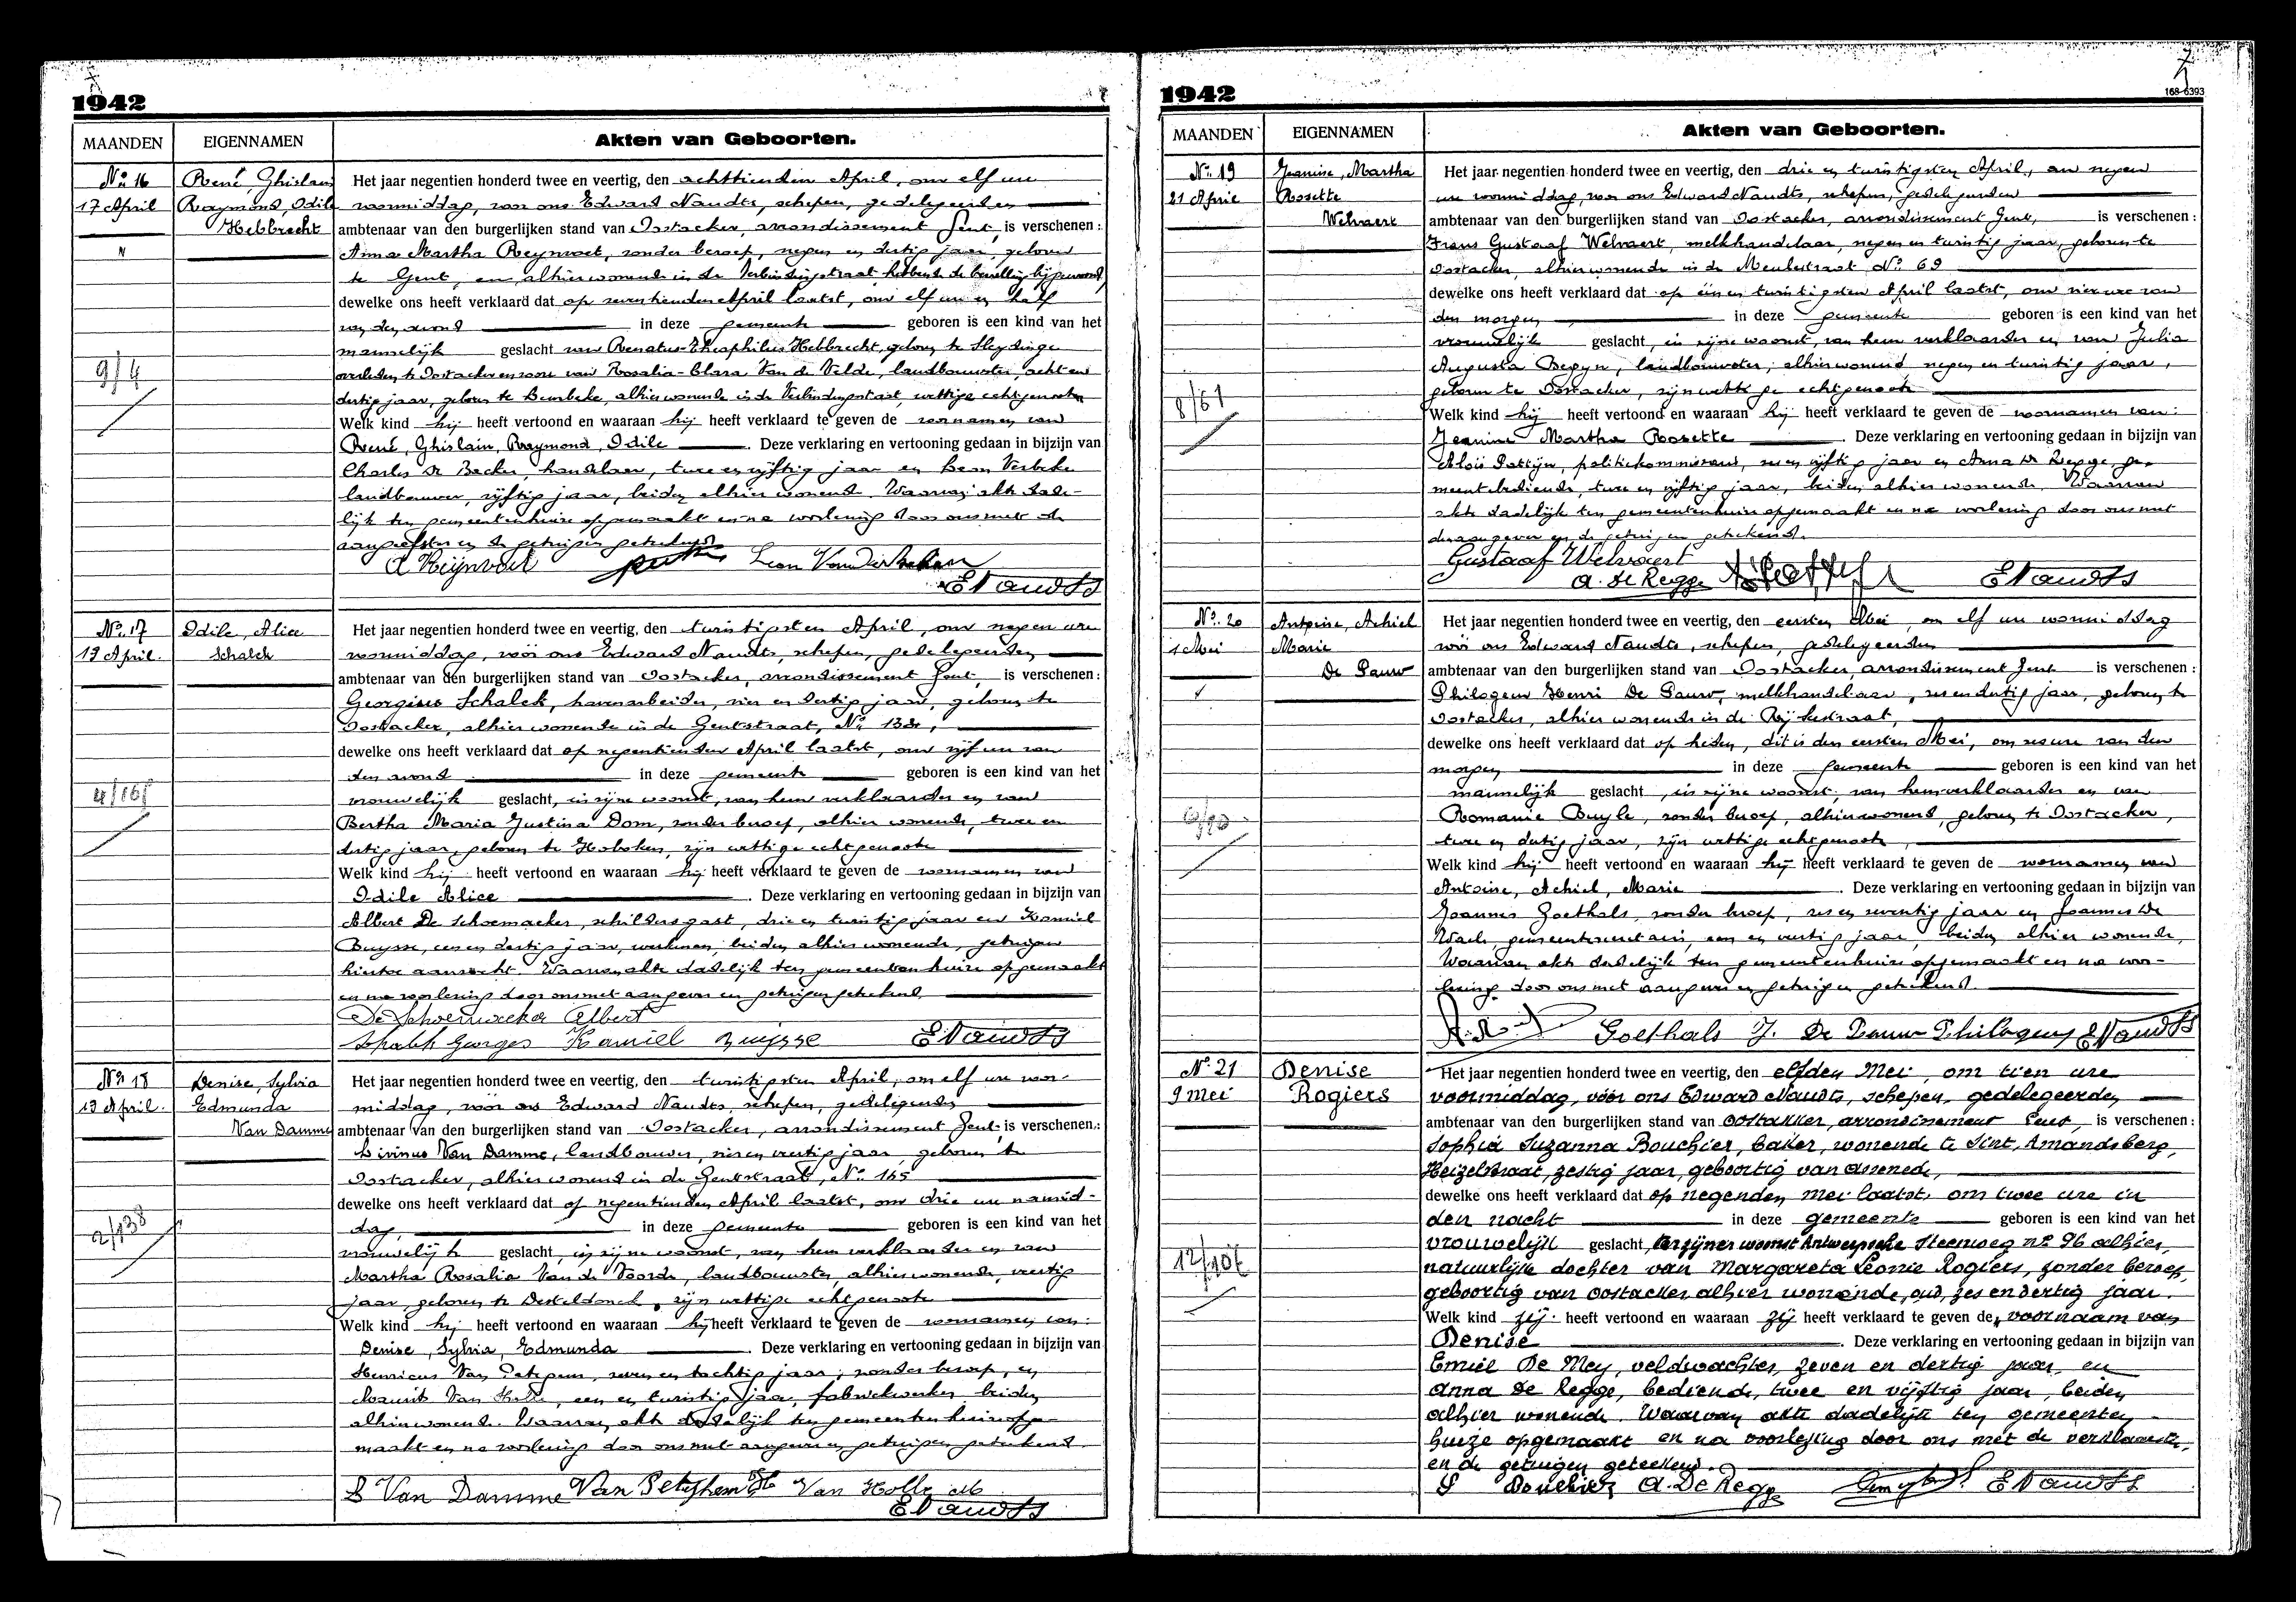 1942
MAANDEN
EIGENNAMEN
Akten van Geboorten.
No 16
17 April
René, Ghislain
Raymond, Odile
Hebbrecht
9/4
Het jaar negentien honderd twee en veertig, den achttienden April, om elf ure
voormiddag, voor ons Edward Naudts, schepen, gedelegeerden
ambtenaar van den burgerlijken stand van Oostacker, arrondissement Gent, is verschenen:
Anna Martha Reynvoet, zonder beroep, negen en dertig jaar, geboren
te Gent, en alhier wonende in de Verbindingstraat, hebbende de bevalling bijgewoond,
dewelke ons heeft verklaard dat op zeventienden April laatst, om elf ure en half
van den avond in deze gemeente geboren is een kind van het
mannelijk geslacht van Renatus-Theophilus Hebbrecht, geboren te Sleydinge
overleden te Oostacker en van Rosalia-Clara Van de Velde, landbouwster, acht en
dertig jaar, geboren te alhier wonende in de Verbindingstraat, wettige echtgenooten
Welk kind hij heeft vertoond en waaraan hij heeft verklaard te geven de voornamen van
René, Ghislain, Raymond, Odile. Deze verklaring en vertooning gedaan in bijzijn van
Charles De Becker, handelaar, twee en vijftig jaar en Leon Verbeke
landbouwer, vijftig jaar, beiden alhier wonende. Waarvan akte dade-
lijk ten gemeentenhuize opgemaakt en na voorlezing door ons met de
aangeefster en de getuigen geteekend.
A Reijnvoet
E Naudts
No 17
19 April.
Odile, Alice
Schalck
4/165
Het jaar negentien honderd twee en veertig, den twintigsten April, om negen ure
voormiddag, vóór ons Edward Naudts, schepen, gedelegeerden
ambtenaar van den burgerlijken stand van Oostacker, arrondissement Gent, is verschenen:
Georgius Schalck, havenarbeider, vier en dertig jaar, geboren te
Oostacker, alhier wonende in de Gentstraat, No 133,
dewelke ons heeft verklaard dat op negentienden April laatst, om vijf ure van
den avond in deze gemeente geboren is een kind van het
vrouwelijk geslacht, in zijne woonst, van hem verklaarder en van
Bertha Maria Justina Dom, zonder beroep, alhier wonende, twee en
dertig jaar, geboren te Hoboken, zijn wettige echtgenoote
Welk kind hij heeft vertoond en waaraan hij heeft verklaard te geven de voornamen van
Odile Alice. Deze verklaring en vertooning gedaan in bijzijn van
Albert De Schoemacker, schildersgast, drie en twintig jaar en Kamiel
Buysse, een en dertig jaar, werkman, beiden alhier wonende, getuigen
hiertoe aanzocht. Waarvan akte dadelijk ten gemeentenhuize opgemaakt
en na voorlezing door ons met aangever en getuigen geteekend.
De Schoemacker Albert
Schalck Georges Kamiel Buijsse E Naudts
No 18
19 April.
Denise, Sylvia
Edmunda
Van Damme
2/138
Het jaar negentien honderd twee en veertig, den twintigsten April, om elf ure voor-
middag, voor ons Edward Naudts, schepen, gedelegeerden
ambtenaar van den burgerlijken stand van Oostacker, arrondissement Gent, is verschenen:
Livinus Van Damme, landbouwer, vier en veertig jaar, geboren te
Oostacker, alhier wonend in de Gentstraat, No 165
dewelke ons heeft verklaard dat op negentienden April laatst, om drie ure namid-
dag, in deze gemeente geboren is een kind van het
vrouwelijk geslacht, in zijne woonst, van hem verklaarder en van
Martha Rosalia Van de Voorde, landbouwster, alhier wonende, veertig
jaar, geboren te Desteldonck, zijn wettige echtgenoote
Welk kind hij heeft vertoond en waaraan hij heeft verklaard te geven de voornamen van:
Denise, Sylvia, Edmunda. Deze verklaring en vertooning gedaan in bijzijn van
Henricus Van Peteghem, zeven en tachtig jaar, zonder beroep, en
Maurits Van Holle, een en twintig jaar, fabriekwerker, beiden
alhier wonende. Waarvan akte dadelijk ten gemeentenhuize opge-
maakt en na voorlezing door ons met aangever en getuigen geteekend.
L Van Damme Van Peteghem H Van Holle M
E Naudts
1942
7
168-6393
MAANDEN
EIGENNAMEN
Akten van Geboorten.
No 19
21 April
Jeanine, Martha
Rosette
Welvaert
8/61
Het jaar negentien honderd twee en veertig, den drie en twintigsten April, om negen
ure voormiddag, voor ons Edward Naudts, schepen, gedelegeerden
ambtenaar van den burgerlijken stand van Oostacker, arrondissement Gent, is verschenen:
Frans Gustaaf Welvaert, melkhandelaar, negen en twintig jaar, geboren te
Oostacker, alhier wonende in de Meulestraat No 69
dewelke ons heeft verklaard dat op één en twintigsten April laatst, om vier ure van
den morgen in deze gemeente geboren is een kind van het
vrouwelijk geslacht, in zijne woonst, van hem verklaarder en van Julia
Augusta Begyn, landbouwster, alhier wonend, negen en twintig jaar,
geboren te Oostacker, zijn wettige echtgenoote
Welk kind hij heeft vertoond en waaraan hij heeft verklaard te geven de voornamen van:
Jeanine Martha Rosette. Deze verklaring en vertooning gedaan in bijzijn van
Aloïs Pattijn, politiekommissaris, zes en vijftig jaar en Anna De Regge, ge-
meentebediende, twee en vijftig jaar, beiden alhier wonende. Waarvan
akte dadelijk ten gemeentenhuize opgemaakt en na voorlezing door ons met
den aangever en de getuigen geteekend.
Gustaaf Welvaert
A. De Regge E Naudts
No 20
1 Mei
Antoine, Achiel
Marie
De Pauw
Het jaar negentien honderd twee en veertig, den eersten Mei, om elf ure voormiddag
vóór ons Edward Naudts, schepen, gedelegeerden
ambtenaar van den burgerlijken stand van Oostacker, arrondissement Gent is verschenen:
Philogeen Henri De Pauw, melkhandelaar, zes en dertig jaar, geboren te
Oostacker, alhier wonende in de Rijkestraat,
dewelke ons heeft verklaard dat op heden, dit is den eersten Mei, om zes ure van den
morgen in deze gemeente geboren is een kind van het
mannelijk geslacht, in zijne woonst, van hem verklaarder en van
Romanie Buyle, zonder beroep, alhier wonend, geboren te Oostacker,
twee en dertig jaar, zijn wettige echtgenoote,
Welk kind hij heeft vertoond en waaraan hij heeft verklaard te geven de voornamen van
Antoine, Achiel, Marie. Deze verklaring en vertooning gedaan in bijzijn van
Joannes Goethals, zonder beroep, zes en zeventig jaar en Joannes De
Waele, gemeentesecretaris, een en veertig jaar, beiden alhier wonende.
Waarvan akte dadelijk ten gemeentenhuize opgemaakt en na voor-
lezing door ons met aangever en getuigen geteekend.
Goethals J. De Pauw Philogeen E Naudts
No 21
9 Mei
Denise
Rogiers
12/107
Het jaar negentien honderd twee en veertig, den elfden Mei, om tien ure
voormiddag, vóór ons Edward Naudts, schepen, gedelegeerden
ambtenaar van den burgerlijken stand van Oostakker, arrondissement Gent, is verschenen:
Sophia Suzanna Bouchier, baker, wonende te Sint Amandsberg,
Heizelstraat, zestig jaar, geboortig van Assenede,
dewelke ons heeft verklaard dat op negenden Mei laatst, om twee ure in
den nacht in deze gemeente geboren is een kind van het
vrouwelijk geslacht, ter zijner woonst Antwerpsche Steenweg no 96 alhier,
natuurlijke dochter van Margareta Leonie Rogiers, zonder beroep,
geboortig van Oostacker alhier wonende, oud, zes en dertig jaar.
Welk kind zij heeft vertoond en waaraan zij heeft verklaard te geven de voornaam van
Denise. Deze verklaring en vertooning gedaan in bijzijn van
Emiel De Mey, veldwachter, zeven en dertig jaar, en
Anna De Regge, bediende, twee en vijftig jaar, beiden
alhier wonende. Waarvan akte dadelijk ten gemeenten-
huize opgemaakt en na voorlezing door ons met de verklaarster,
en de getuigen geteekend.
S Bouchier A. De Regge E Naudts